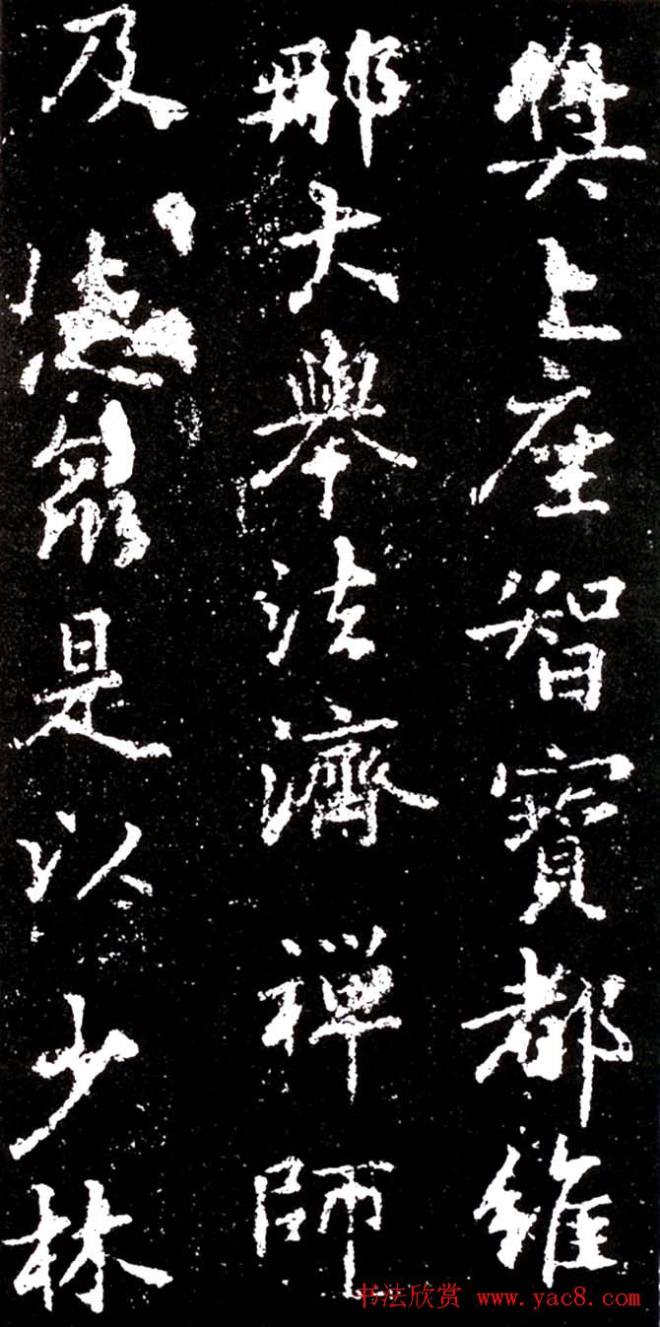 奬上座智寶都維
那大舉法濟禪師
及德眾是以少林
书法欣赏 www.yac8.com